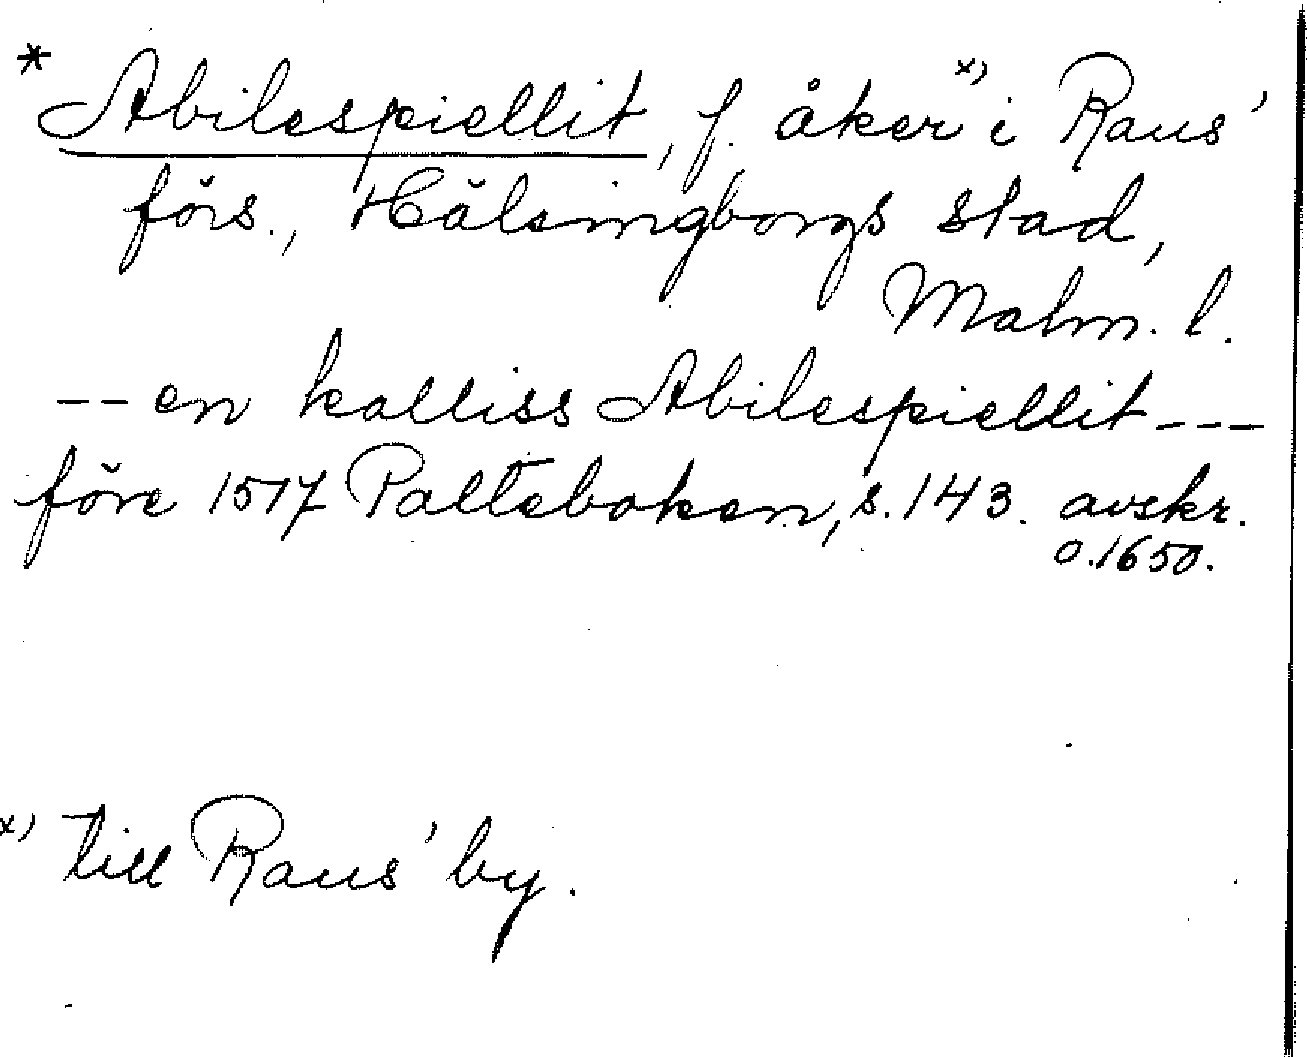 * Abilespiellit, f. åker x) i Raus'
förs., Hälsingborgs stad,
Malm. l.
-- en kalliss Abilespiellit ---
före 1517 Palteboken, s. 143. avskr.
o. 1650.
x) till Raus' by.